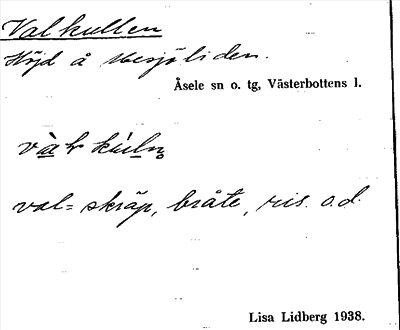 Valkullen
Höjd å Mesjöliden.
Åsele sn o. tg, Västerbottens l.
val = skräp, bråte, ris. o.d.
Lisa Lidberg 1938.